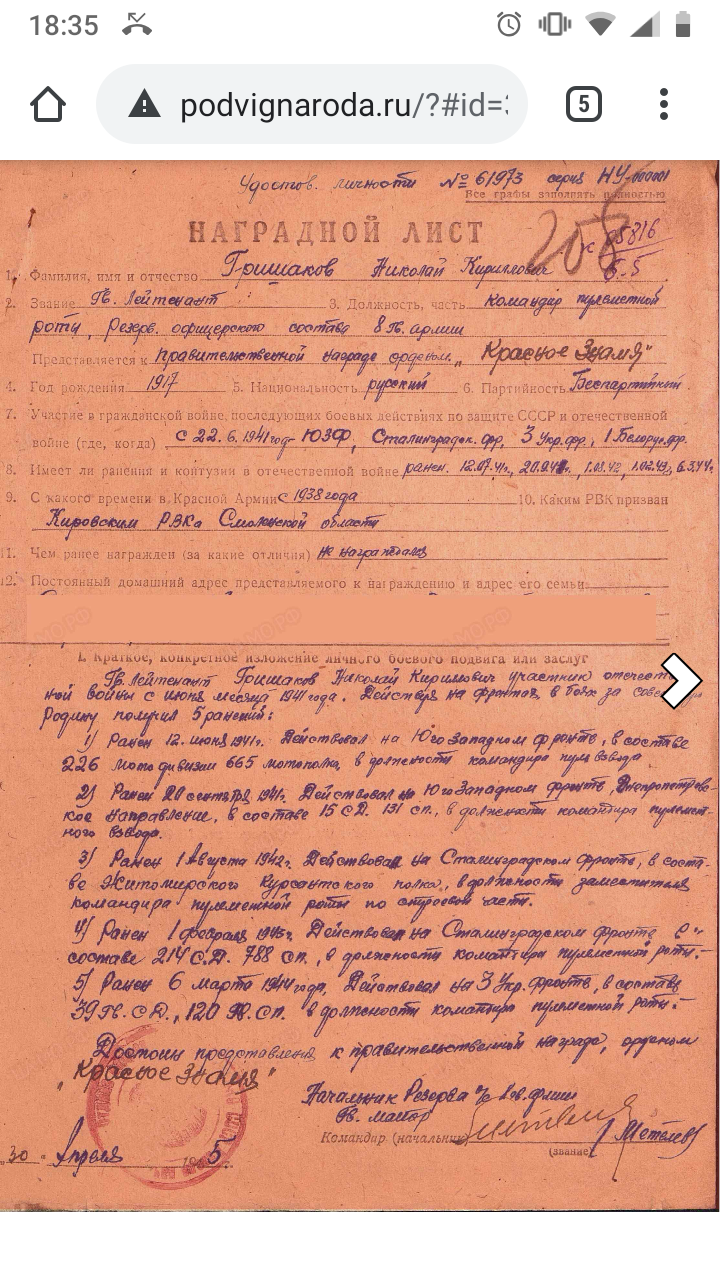 18:35
podvignaroda.ru/?#id=
5
Удостов. личности № 61973 серия НУ-000001
Все графы заполнять полностью
НАГРАДНОЙ ЛИСТ
208
1. Фамилия, имя и отчество Гришаков Николай Кириллович
2. Звание Гв. Лейтенант 3. Должность, часть командир пулеметной
роты, Резерв. офицерского состава 8 Гв. армии
Представляется к правительственной награде орденом „Красное Знамя"
4. Год рождения 1917 5. Национальность русский 6. Партийность Беспартийный
7. Участие в гражданской войне, последующих боевых действиях по защите СССР и отечественной
войне (где, когда) с 22.6.1941 год- ЮЗФ, Сталинградск. фр, 3 Укр. фр., 1 Белорус. фр.
8. Имеет ли ранения и контузии в отечественной войне ранен. 12.07.41г., 20.9.41., 1.08.42, 1.02.43, 6.3.44г.
9. С какого времени в Красной Армии с 1938 года 10. Каким РВК призван
Кировским РВКа Смоленской области
11. Чем ранее награжден (за какие отличия) Не награждался
12. Постоянный домашний адрес представляемого к награждению и адрес его семьи
I. Краткое, конкретное изложение личного боевого подвига или заслуг
Гв. Лейтенант Гришаков Николай Кириллович участник отечест
ной войны с июня месяца 1941 года. Действуя на фронтах, в боях за сове
Родину получил 5 ранений:
1) Ранен 12. июня 1941г. Действовал на Юго Западном фронте, в составе
226 мото дивизии 665 мотополка, в должности командира пул. взвода
2) Ранен 20 сентября 1941г. Действовал на Юго Западном фронте, Днепропетровс-
кое направление, в составе 15 СД. 131 сп., в должности командира пулемет-
ного взвода.
3) Ранен 1 Августа 1942г. Действовал на Сталинградском фронте, в соста-
ве Житомирского Курсантского полка, в должности заместителя
командира пулеметной роты по строевой части.
4) Ранен 1 февраля 1943г. Действовал на Сталинградском фронте в
составе 214 С.Д. 788 сп., в должности командира пулеметной роты.
5) Ранен 6 марта 1944 года, Действовал на 3 Укр. фронте, в составе
39 Гв. СД., 120 Гв. Сп. в должности командира пулеметной роты.
Достоин представления к правительственной награде, орденом
„Красное Знамя"
Начальник Резерва армии
Гв. майор
Командир (начальник)
(звание)
„30" Апреля 1945